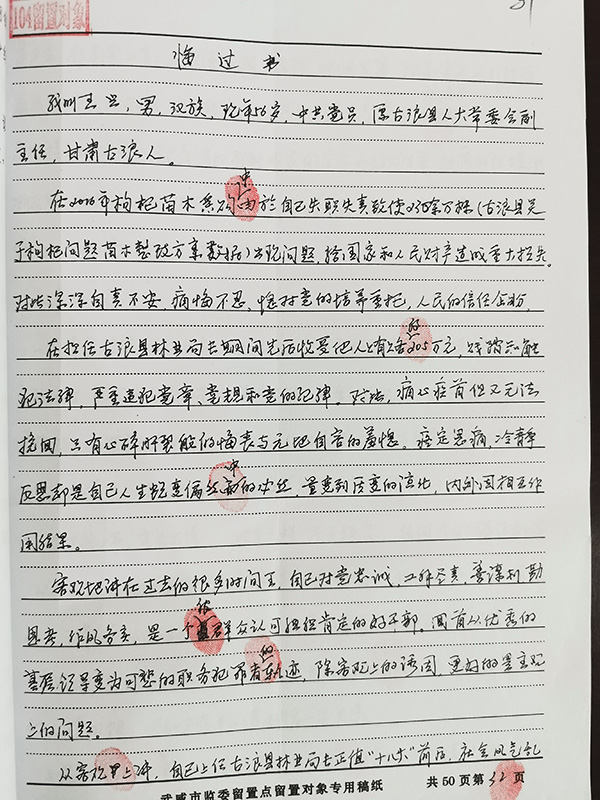 104留置对象
31
悔过书
我叫王兴，男，汉族，现年56岁，中共党员，原古浪县人大常委会副
主任，甘肃古浪人。
在2016年枸杞苗木采购中由於自己失职失责致使2350余万株（古浪县关
于枸杞问题苗木整改方案数据）出现问题，给国家和人民财产造成重大损失。
对此深深自责不安，痛悔不忍，愧对党的培养重托，人民的信任企盼，
在担任古浪县林业局长期间先后收受他人贿赂的205万元，践踏和触
犯法律，严重违犯党章、党规和党的纪律。对此，痛心疾首但又无法
挽回，只有心碎肝裂般的悔丧与无地自容的羞愧。痛定思痛，冷静
反思却是自己人生蜕变偏丝中的必丝，量变到质变的演化，内外因相互作
用结果。
客观地讲在过去的很多时间里，自己对党忠诚，工作尽责，善谋利勤
思考，作风务实，是一个被群众认可组织肯定的好干部。回首从优秀的
基层领导变为可憨的职务犯罪者的轨迹，除客观上的诱因，更好的是主观
上的问题。
从客观上讲，自己上任古浪县林业局长正值“十八大”前后，社会风气乱
武威市监委留置点留置对象专用稿纸
共50页第32页